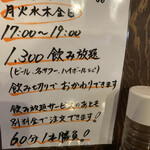 月火水木金日
17:00〜19:00
1,300 飲み放題
(ビール、各サワー、ハイボールなど)
飲み切りでおかわりできます
飲み放題サービスのあとも
別料金でご注文できます!
60分1本勝負!